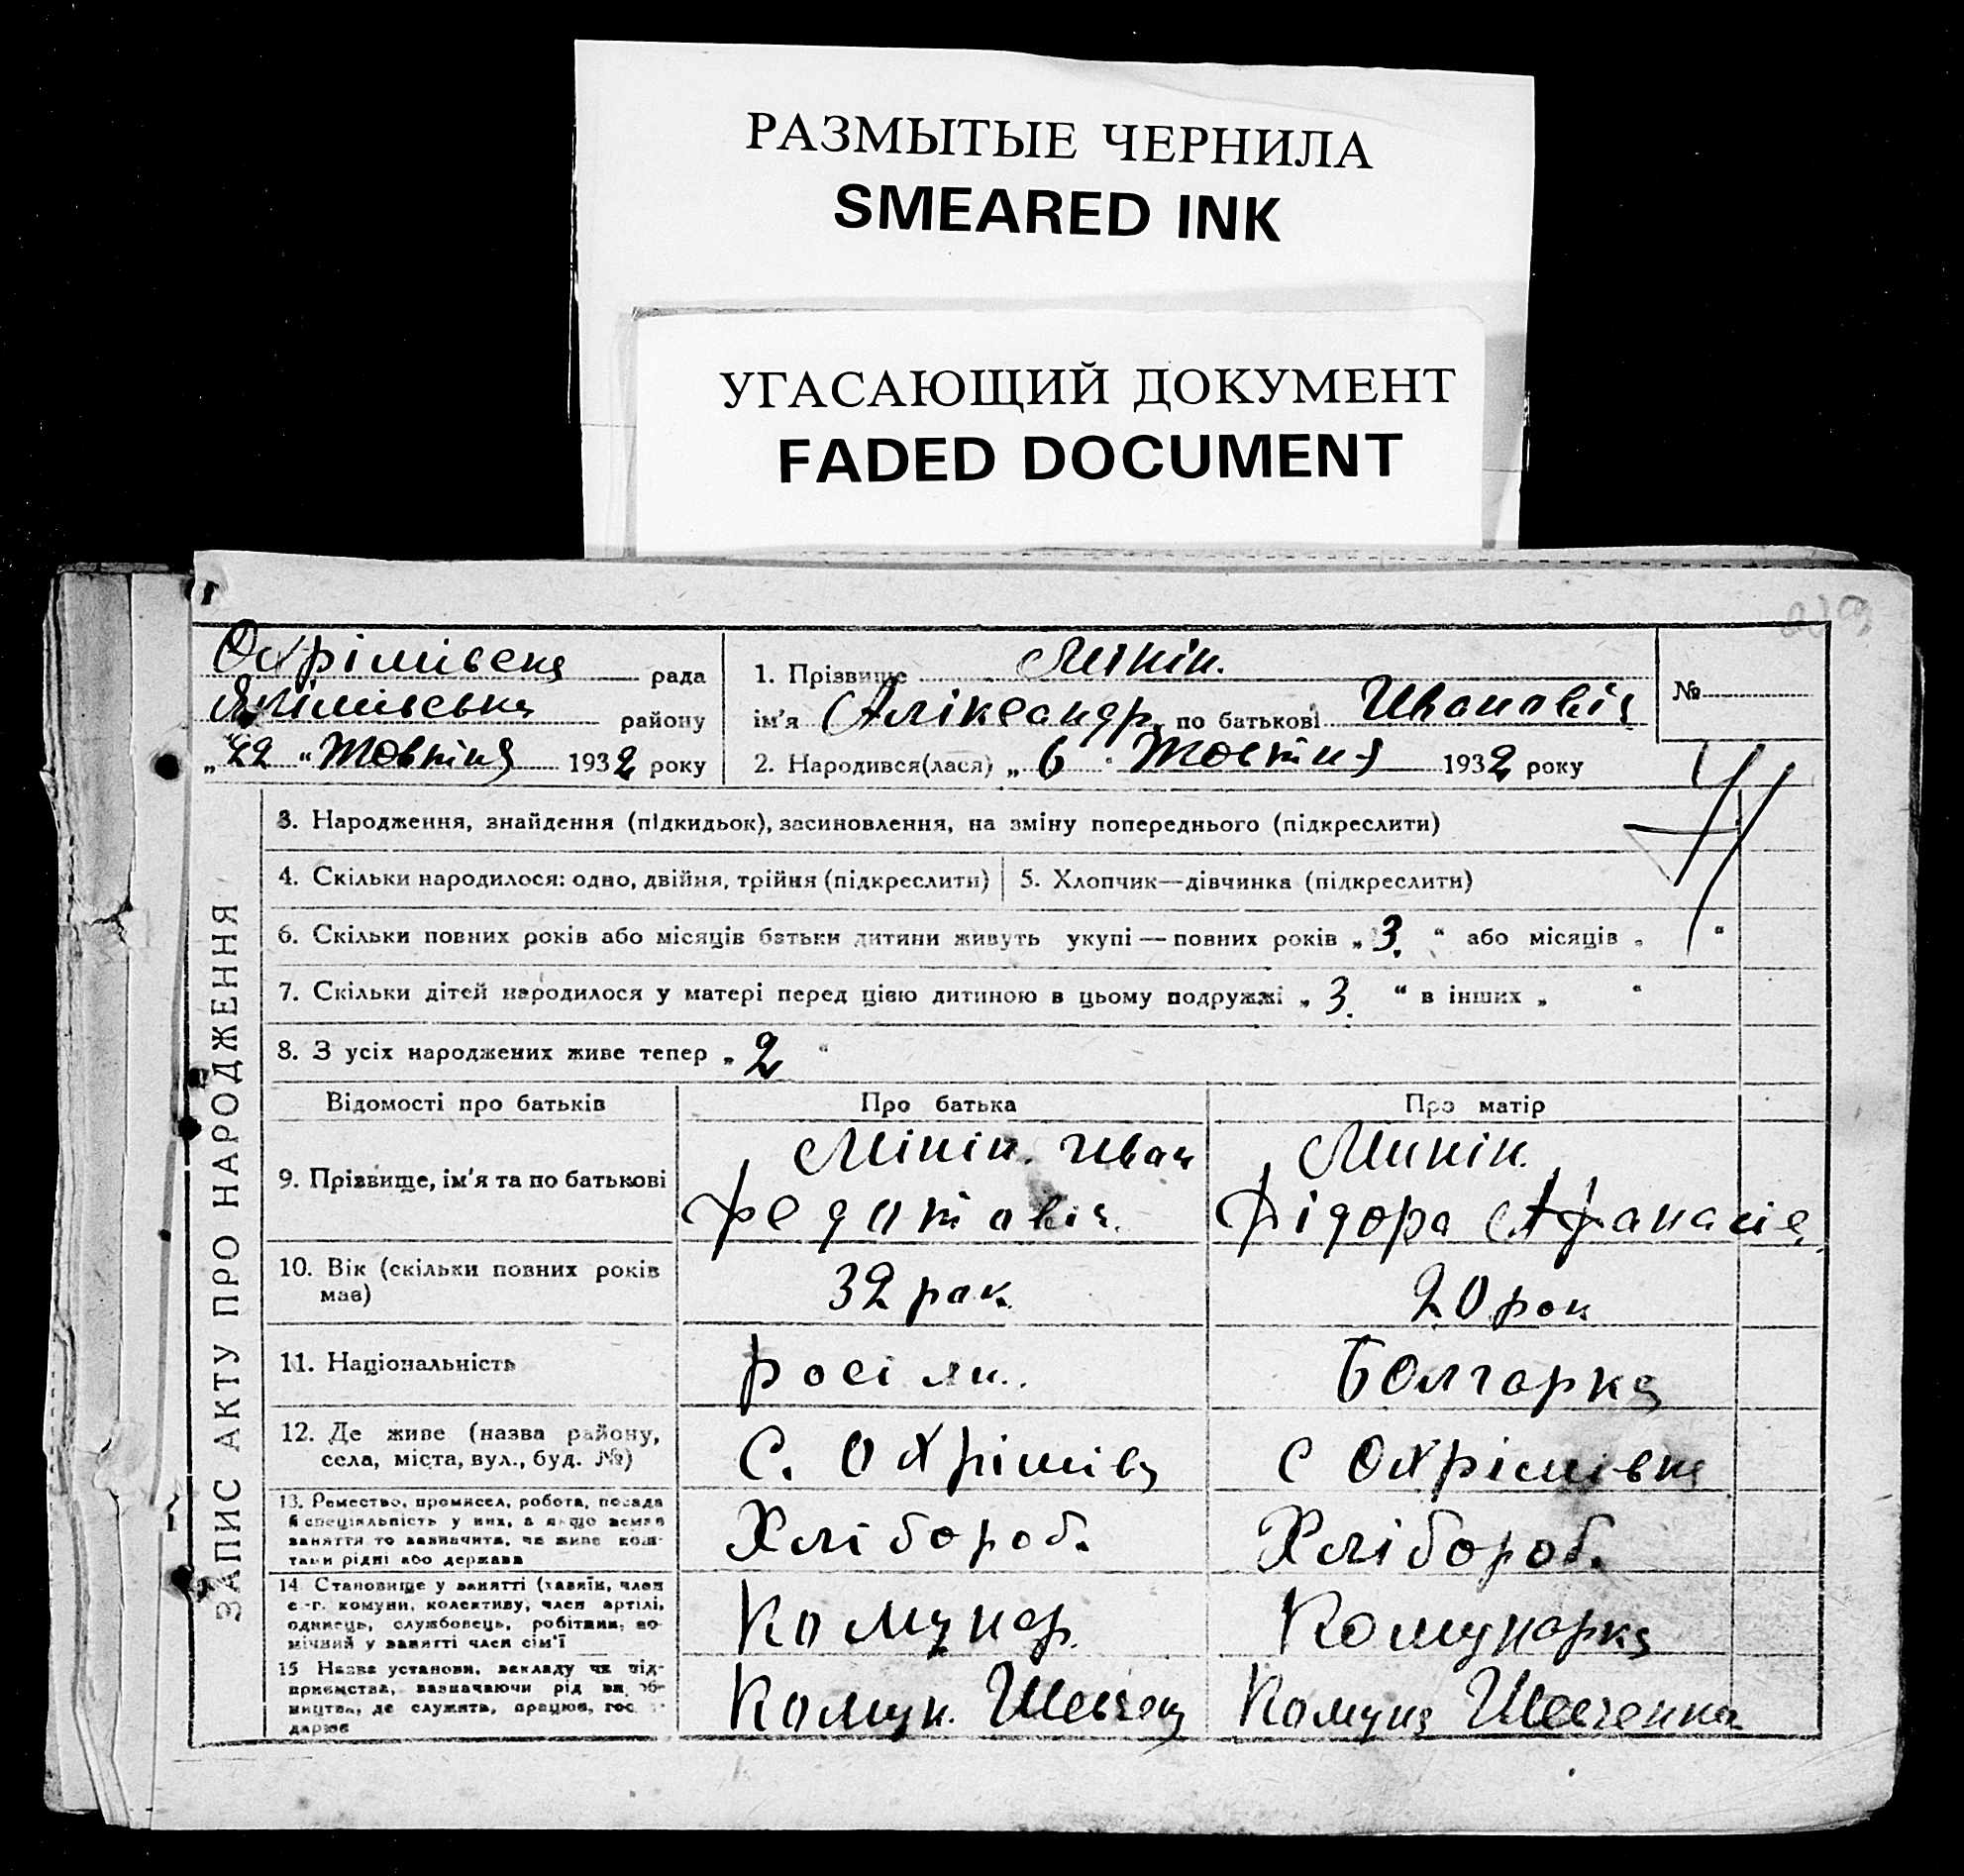 РАЗМЫТЫЕ ЧЕРНИЛА
SMEARED INK
УГАСАЮЩИЙ ДОКУМЕНТ
FADED DOCUMENT
Охрімівска рада
Якімівська району
„22 “ Жовтня 1932 року
1. Прізвище Мінін.
ім'я Аліксандр по батькові Ивановіч
2. Народився(лася) „ 6 “ Жовтня 1932 року
№
ЗАПИС АКТУ ПРО НАРОДЖЕННЯ
3. Народження, знайдення (підкидьок), засиновлення, на зміну попереднього (підкреслити)
4. Скільки народилося: одно, двійня, трійня (підкреслити)
5. Хлопчик—дівчинка (підкреслити)
6. Скільки повних років або місяців батьки дитини живуть укупі — повних років „ 3. “ або місяців „ “
7. Скільки дітей народилося у матері перед цією дитиною в цьому подружжі „ 3. “ в інших „ “
8. З усіх народжених живе тепер „ 2 “
Відомості про батьків
Про батька
Про матір
9. Прізвище, ім'я та по батькові
Мінін. Иван
Федотовіч.
Минін.
Фідора Афанасіе
10. Вік (скільки повних років
має)
32 рок
20 рок
11. Національність
росіян..
Болгарка
12. Де живе (назва району,
села, міста, вул., буд. №)
С. Охрімівц
С Охрімівка
13. Ремество, промисел, робота, посада
й спеціяльність у них, а якщо немає
заняття то зазначити, чи живе кош-
тами рідні або держави
Хлібороб.
Хлібороб.
14 Становище у занятті (хазяїн, член
с.-г. комуни, колективу, член артілі,
одинець, службовець, робітник, по-
мічний у занятті член сім'ї
Комунар.
Комунарка
15 Назва установи, закладу чи під-
приємства, зазначаючи рід ви об-
ництва, де служить, працює, гос
дарює
Комун. Шевченк
Комуна Шевченка